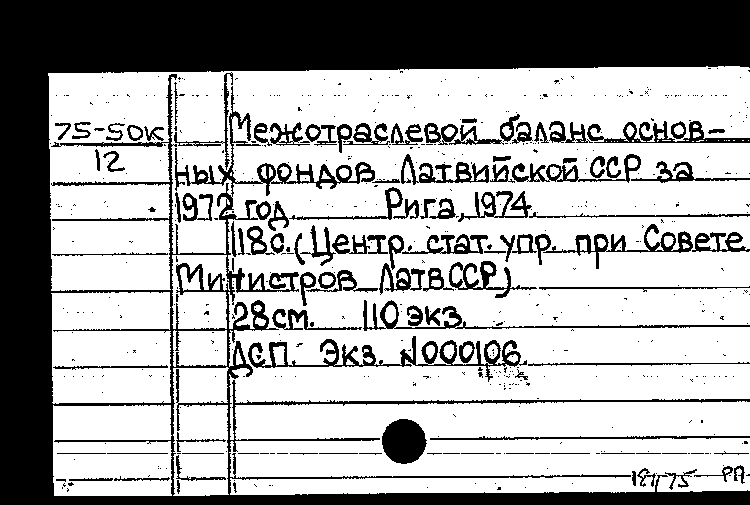 75-50к
12
Межотраслевой баланс основ-
ных фондов Латвийской ССР за
1972 год. Рига, 1974.
118с. (Центр. стат. упр. при Совете
Министров ЛатвССР)
28см. 110 экз.
ДСП. Экз. N000106.